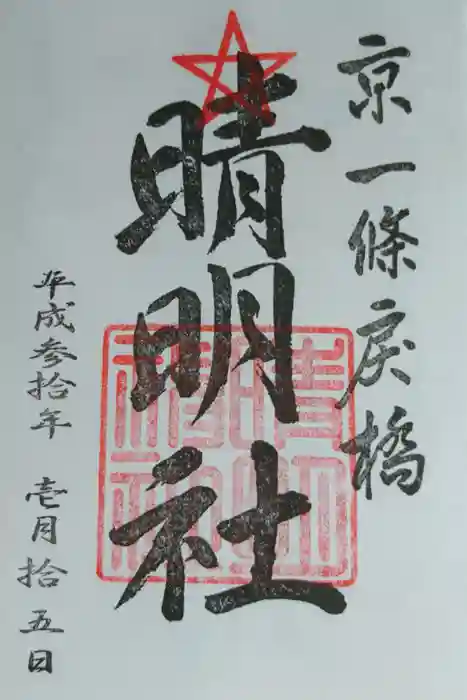 京一條戻橋
晴明社
平成参拾年 壱月拾五日